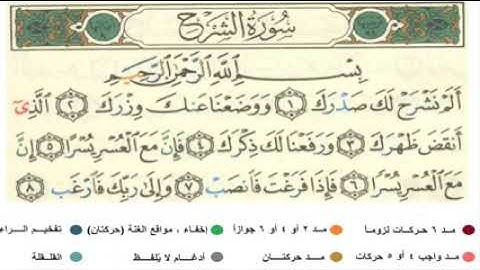 سُورَةُ الشَّرْحِ
بِسْمِ اللَّهِ الرَّحْمَٰنِ الرَّحِيمِ
أَلَمْ نَشْرَحْ لَكَ صَدْرَكَ ١ وَوَضَعْنَا عَنكَ وِزْرَكَ ٢ الَّذِي
أَنقَضَ ظَهْرَكَ ٣ وَرَفَعْنَا لَكَ ذِكْرَكَ ٤ فَإِنَّ مَعَ الْعُسْرِ يُسْرًا ٥ إِنَّ
مَعَ الْعُسْرِ يُسْرًا ٦ فَإِذَا فَرَغْتَ فَانصَبْ ٧ وَإِلَىٰ رَبِّكَ فَارْغَب ٨
مد ٦ حركات لزوماً مد ٢ او ٤ او ٦ جوازاً إخفاء ، مواقع الغنة (حركتان) تفخيم الراء
مد واجب ٤ أو ٥ حركات مد حركتان أدغام لا يلفظ القلقلة